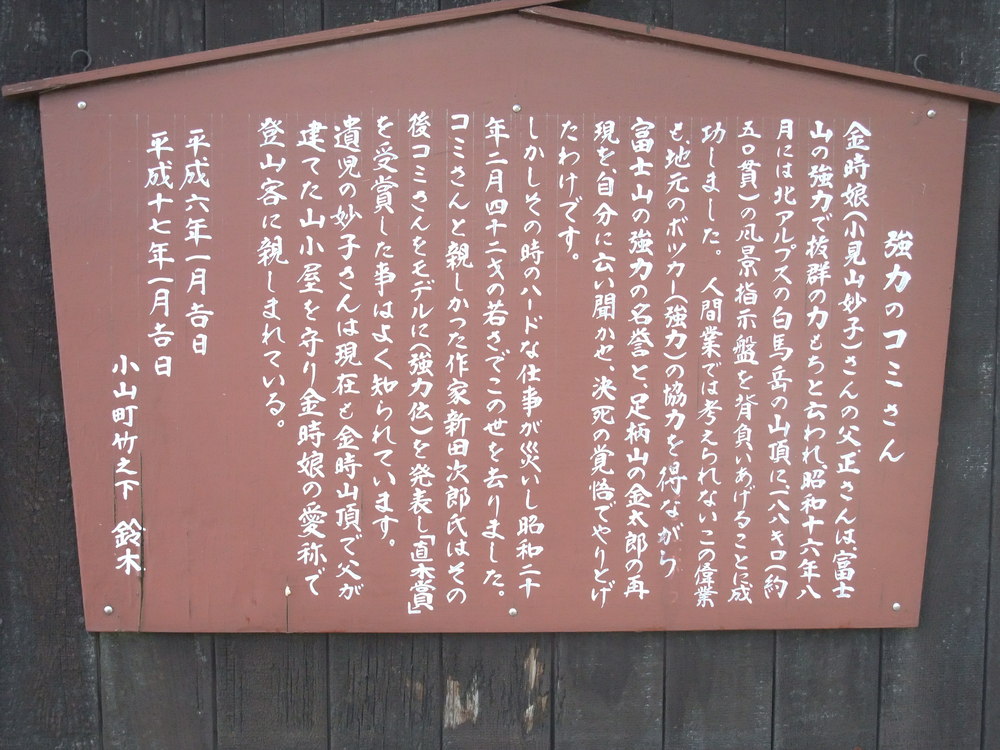 強力のコミさん
金時娘(小見山妙子)さんの父、正さんは、富士
山の強力で抜群の力もちと云われ、昭和十六年八
月には北アルプスの白馬岳の山頂に、一八八キロ(約
五〇貫)の風景指示盤を背負いあげることに成
功しました。 人間業では考えられないこの偉業
も、地元のボッカー(強力)の協力を得ながら
富士山の強力の名誉と、足柄山の金太郎の再
現を、自分に云い聞かせ、決死の覚悟でやりとげ
たわけです。
しかしその時のハードな仕事が災いし昭和二十
年二月四十二才の若さでこの世を去りました。
コミさんと親しかった作家新田次郎氏はその
後コミさんをモデルに(強力伝)を発表し「直木賞」
を受賞した事はよく知られています。
遺児の妙子さんは現在も金時山頂で父が
建てた山小屋を守り金時娘の愛称で
登山客に親しまれている。
平成六年一月吉日
平成十七年一月吉日
小山町竹之下 鈴木